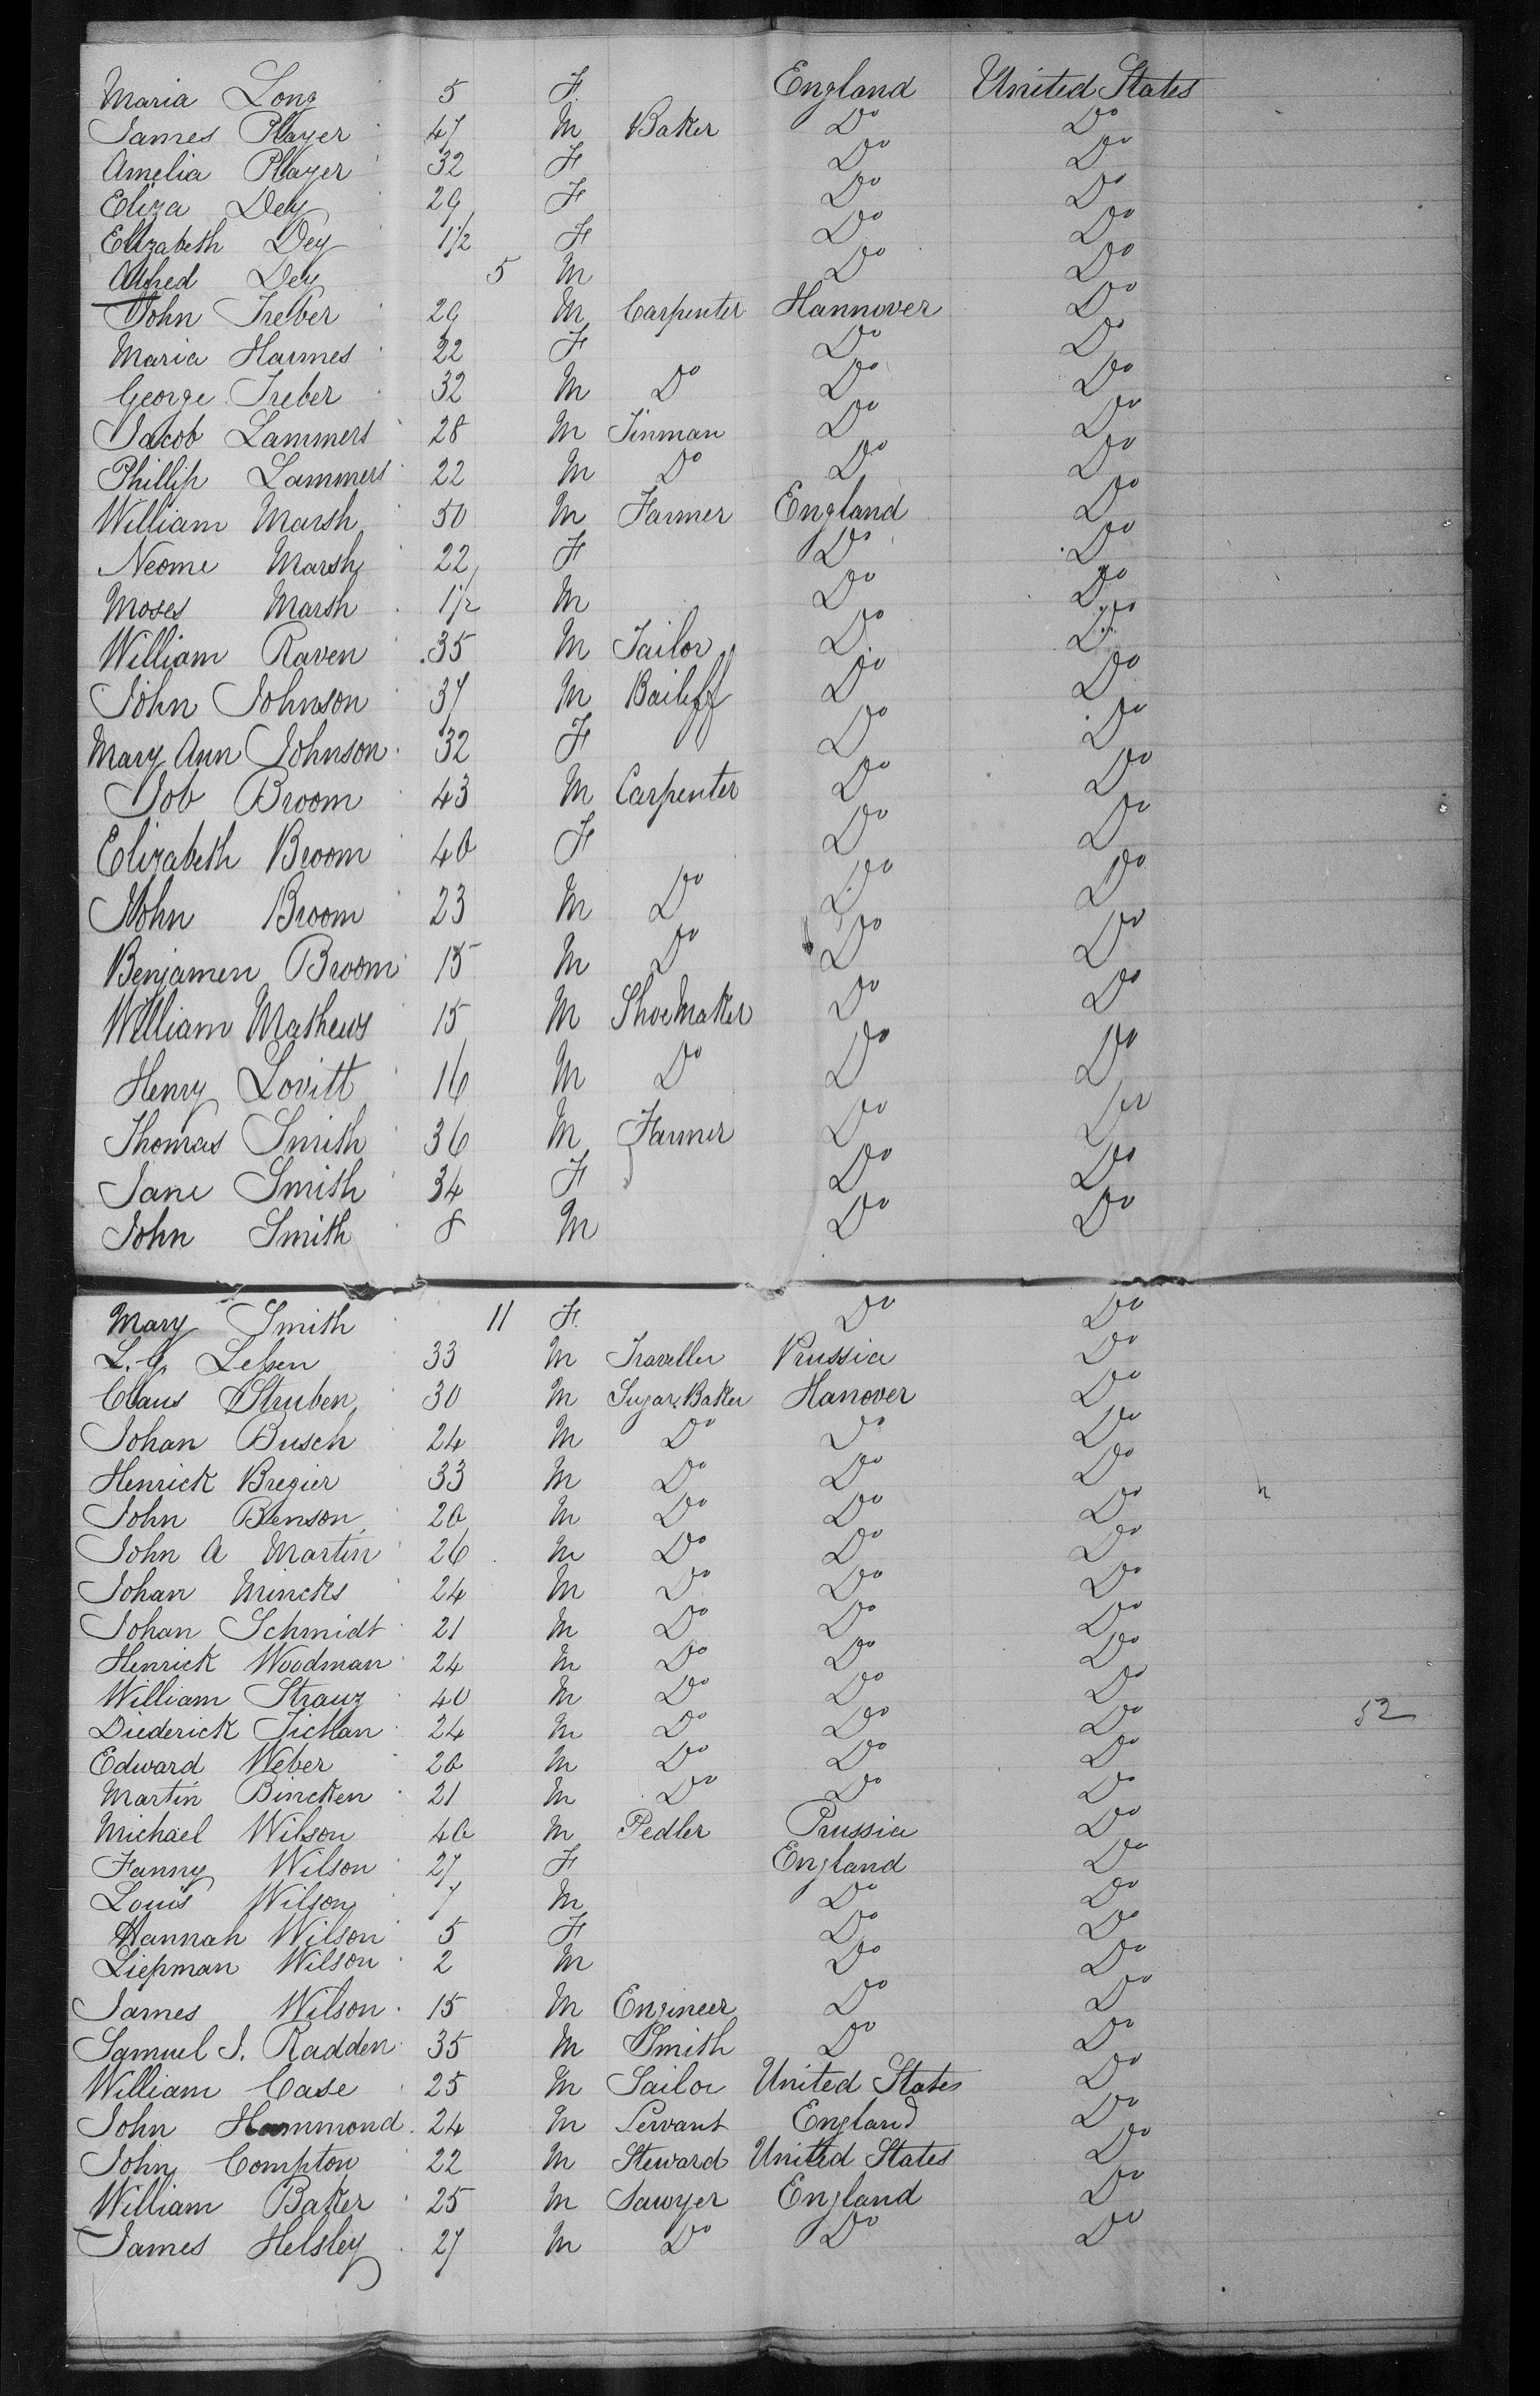 Maria Long 5 F. England United States
James Player 47 M Baker Do Do
Amelia Player 32 F Do Do
Eliza Dey 29 F Do Do
Elizabeth Dey 1 1/2 F Do Do
Alfred Dey 5 M Do Do
John Treber 29 M Carpenter Hannover Do
Maria Harmes 22 F Do Do
George Treber 32 M Do Do Do
Jacob Lammers 28 M Tinman Do Do
Phillip Lammers 22 M Do Do Do
William Marsh 50 M Farmer England Do
Neome Marsh 22 F Do Do
Moses Marsh 1 1/2 M Do Do
William Raven 35 M Tailor Do Do
John Johnson 37 M Bailiff Do Do
Mary Ann Johnson 32 F Do Do
Job Broom 43 M Carpenter Do Do
Elizabeth Broom 40 F Do Do
John Broom 23 M Do Do Do
Benjamen Broom 15 M Do Do Do
William Mathews 15 M ShoeMaker Do Do
Henry Lovitt 16 M Do Do Do
Thomas Smith 36 M Farmer Do Do
Jane Smith 34 F Do Do
John Smith 8 M Do Do
Mary Smith 11 F. Do Do
L. G. Lessen 33 M Traveller Prussia Do
Claus Struben 30 M Sugar Baker Hanover Do
Johan Busch 24 M Do Do Do
Henrick Bregier 33 M Do Do Do
John Benson 20 M Do Do Do
John A Martin 26 M Do Do Do
Johan Mincks 24 M Do Do Do
Johan Schmidt 21 M Do Do Do
Henrick Woodman 24 M Do Do Do
William Strauz 40 M Do Do Do
Diederick 24 M Do Do Do 52
Edward Weber 20 M Do Do Do
Martin Bincken 21 M Do Do Do
Michael Wilson 40 M Pedler Prussia Do
Fanny Wilson 27 F England Do
Louis Wilson 7 M Do Do
Hannah Wilson 5 F Do Do
Liepman Wilson 2 M Do Do
James Wilson 15 M Engineer Do Do
Samuel J. Radden 35 M Smith Do Do
William Case 25 M Sailor United States Do
John Hammond 24 M Servant England Do
John Compton 22 M Steward United States Do
William Baker 25 M Sawyer England Do
James Helsley 27 M Do Do Do